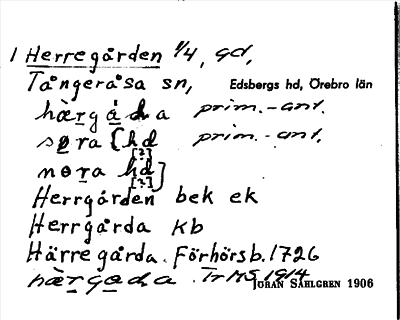 1 Herregården 1/4, gd,
Tångeråsa sn, Edsbergs hd, Örebro län
hærgåda prim.-ant.
søra {hd prim.-ant.
[?]
nora hd}
[?]
Herrgården bek ek
Herrgårda Kb
Härregårda. Förhörsb. 1726
hærgada. Tr MS 1914
JÖRAN SAHLGREN 1906